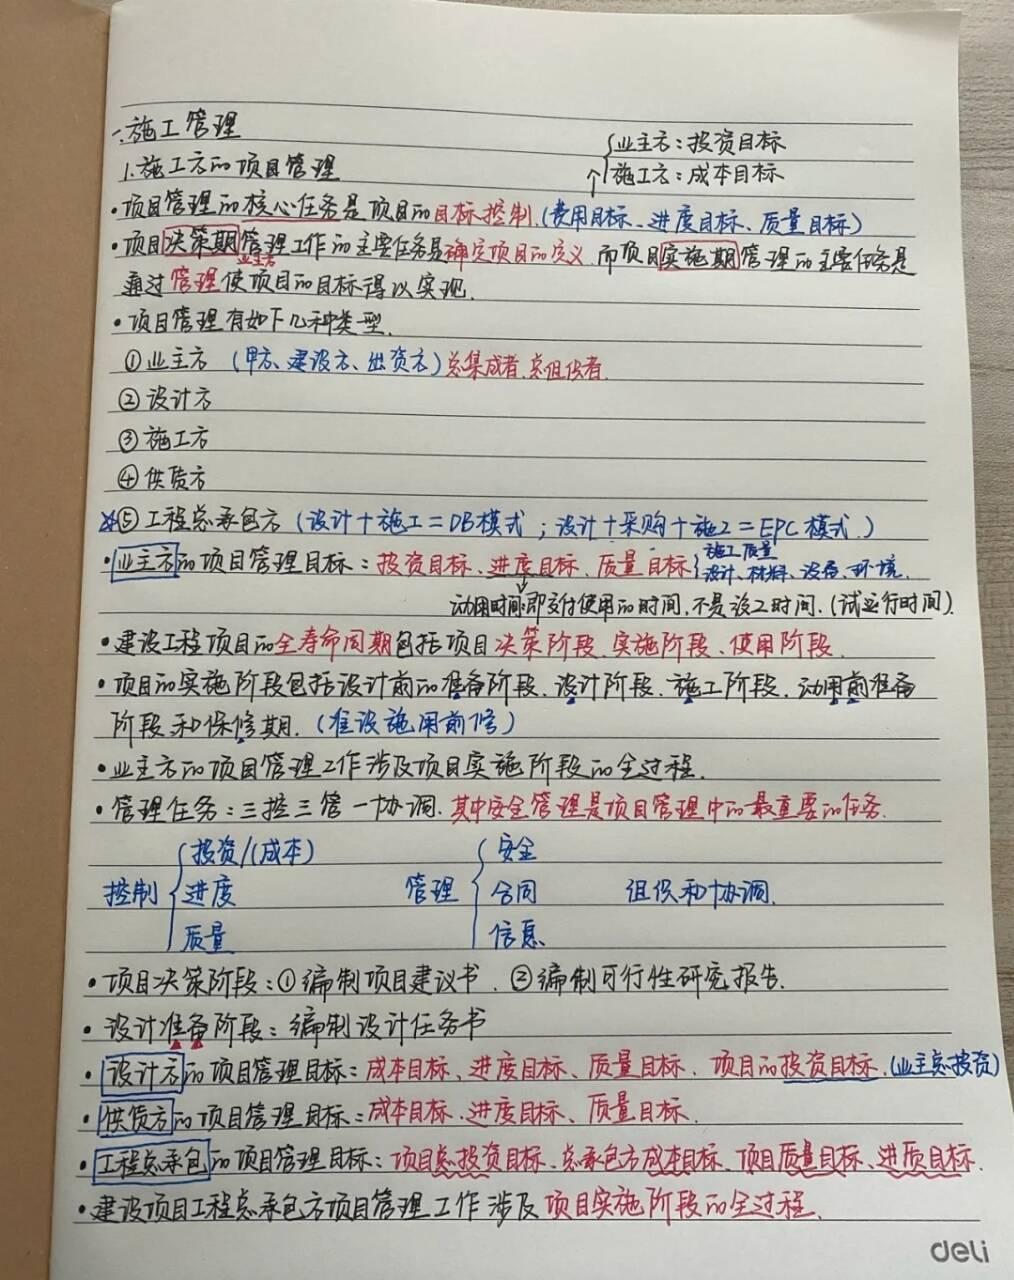 一.施工管理
业主方：投资目标
1.施工方的项目管理
↑施工方：成本目标
•项目管理的核心任务是项目的目标控制.(费用目标、进度目标、质量目标)
•项目决策期管理工作的主要任务是确定项目的定义.而项目实施期管理的主要任务是
业主方
通过管理使项目的目标得以实现.
•项目管理有如下几种类型.
①业主方 (甲方、建设方、出资方)总集成者.总组织者.
②设计方
③施工方
④供货方
☆⑤工程总承包方 (设计+施工=DB模式；设计+采购+施工=EPC模式.)
施工质量
•业主方的项目管理目标：投资目标、进度目标、质量目标 设计、材料、设备、环境.
动用时间:即交付使用的时间.不是竣工时间.(试运行时间).
•建设工程项目的全寿命周期包括项目决策阶段、实施阶段、使用阶段.
•项目的实施阶段包括设计前的准备阶段、设计阶段、施工阶段、动用前准备
阶段和保修期.(准设施用前修)
•业主方的项目管理工作涉及项目实施阶段的全过程.
•管理任务：三控三管一协调.其中安全管理是项目管理中的最重要的任务.
投资/(成本) 安全
控制 进度 管理 合同 组织和协调.
质量 信息.
•项目决策阶段：①编制项目建议书.②编制可行性研究报告.
•设计准备阶段：编制设计任务书
•设计方的项目管理目标：成本目标、进度目标、质量目标.项目的投资目标.(业主总投资)
•供货方的项目管理目标：成本目标、进度目标、质量目标.
•工程总承包的项目管理目标：项目总投资目标、总承包方成本目标、项目质量目标、进质目标.
•建设项目工程总承包方项目管理工作涉及项目实施阶段的全过程.
deli